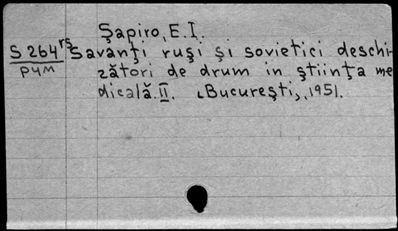 Șapiro, E.I.
S 264 rs Savanți ruși și sovietici deschi-
рум zători de drum in știința me
dicală. II. București, 1951.